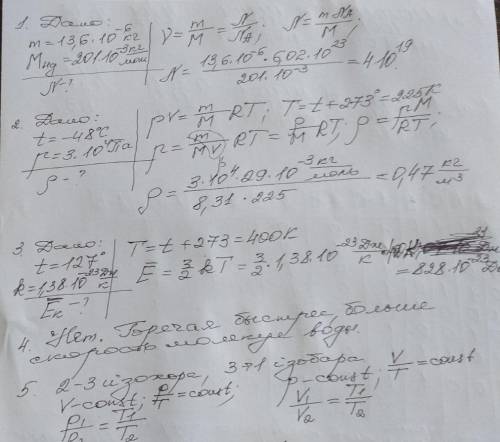 1. Дано:
m = 13,6·10⁻⁶ кг
M = 201·10⁻³ кг/мол
N - ?
ν = m/M = N/NA; N = mNA/M;
N = 13,6·10⁻⁶·6,02·10²³ / 201·10⁻³ = 4·10¹⁹
2. Дано:
t = -48°C
p = 3·10⁴ Па
ρ - ?
pV = m/M RT; T = t + 273° = 225K
p = m/MV RT = ρ/M RT; ρ = pM/RT;
ρ = 3·10⁴·29·10⁻³ кг/моль / 8,31·225 = 0,47 кг/м³
3. Дано:
t = 127°
k = 1,38·10⁻²³ Дж/к
Eк - ?
T = t + 273 = 400K
E = 3/2 kT = 3/2·1,38·10⁻²³ Дж/к
= 828·10⁻²³ Дж
4. Нет. Горячая быстрее, больше
скорость молекул воды.
5. 2-3 изохора, 3-1 изобара
V-const; p/T = const; p-const; V/T = const
p1/p2 = T1/T2 V1/V2 = T1/T2